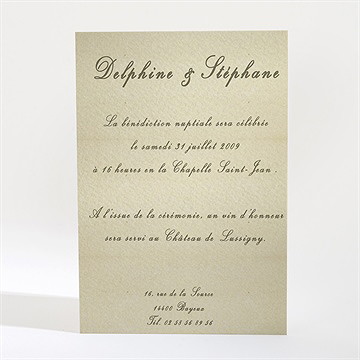 Delphine & Stéphane
La bénédiction nuptiale sera célébrée
le samedi 31 juillet 2009
à 16 heures en la Chapelle Saint-Jean .
A l'issue de la cérémonie, un vin d'honneur
sera servi au Château de Lussigny.
16, rue de la Source
14400 Bayeux
Tél. 02 58 56 89 56